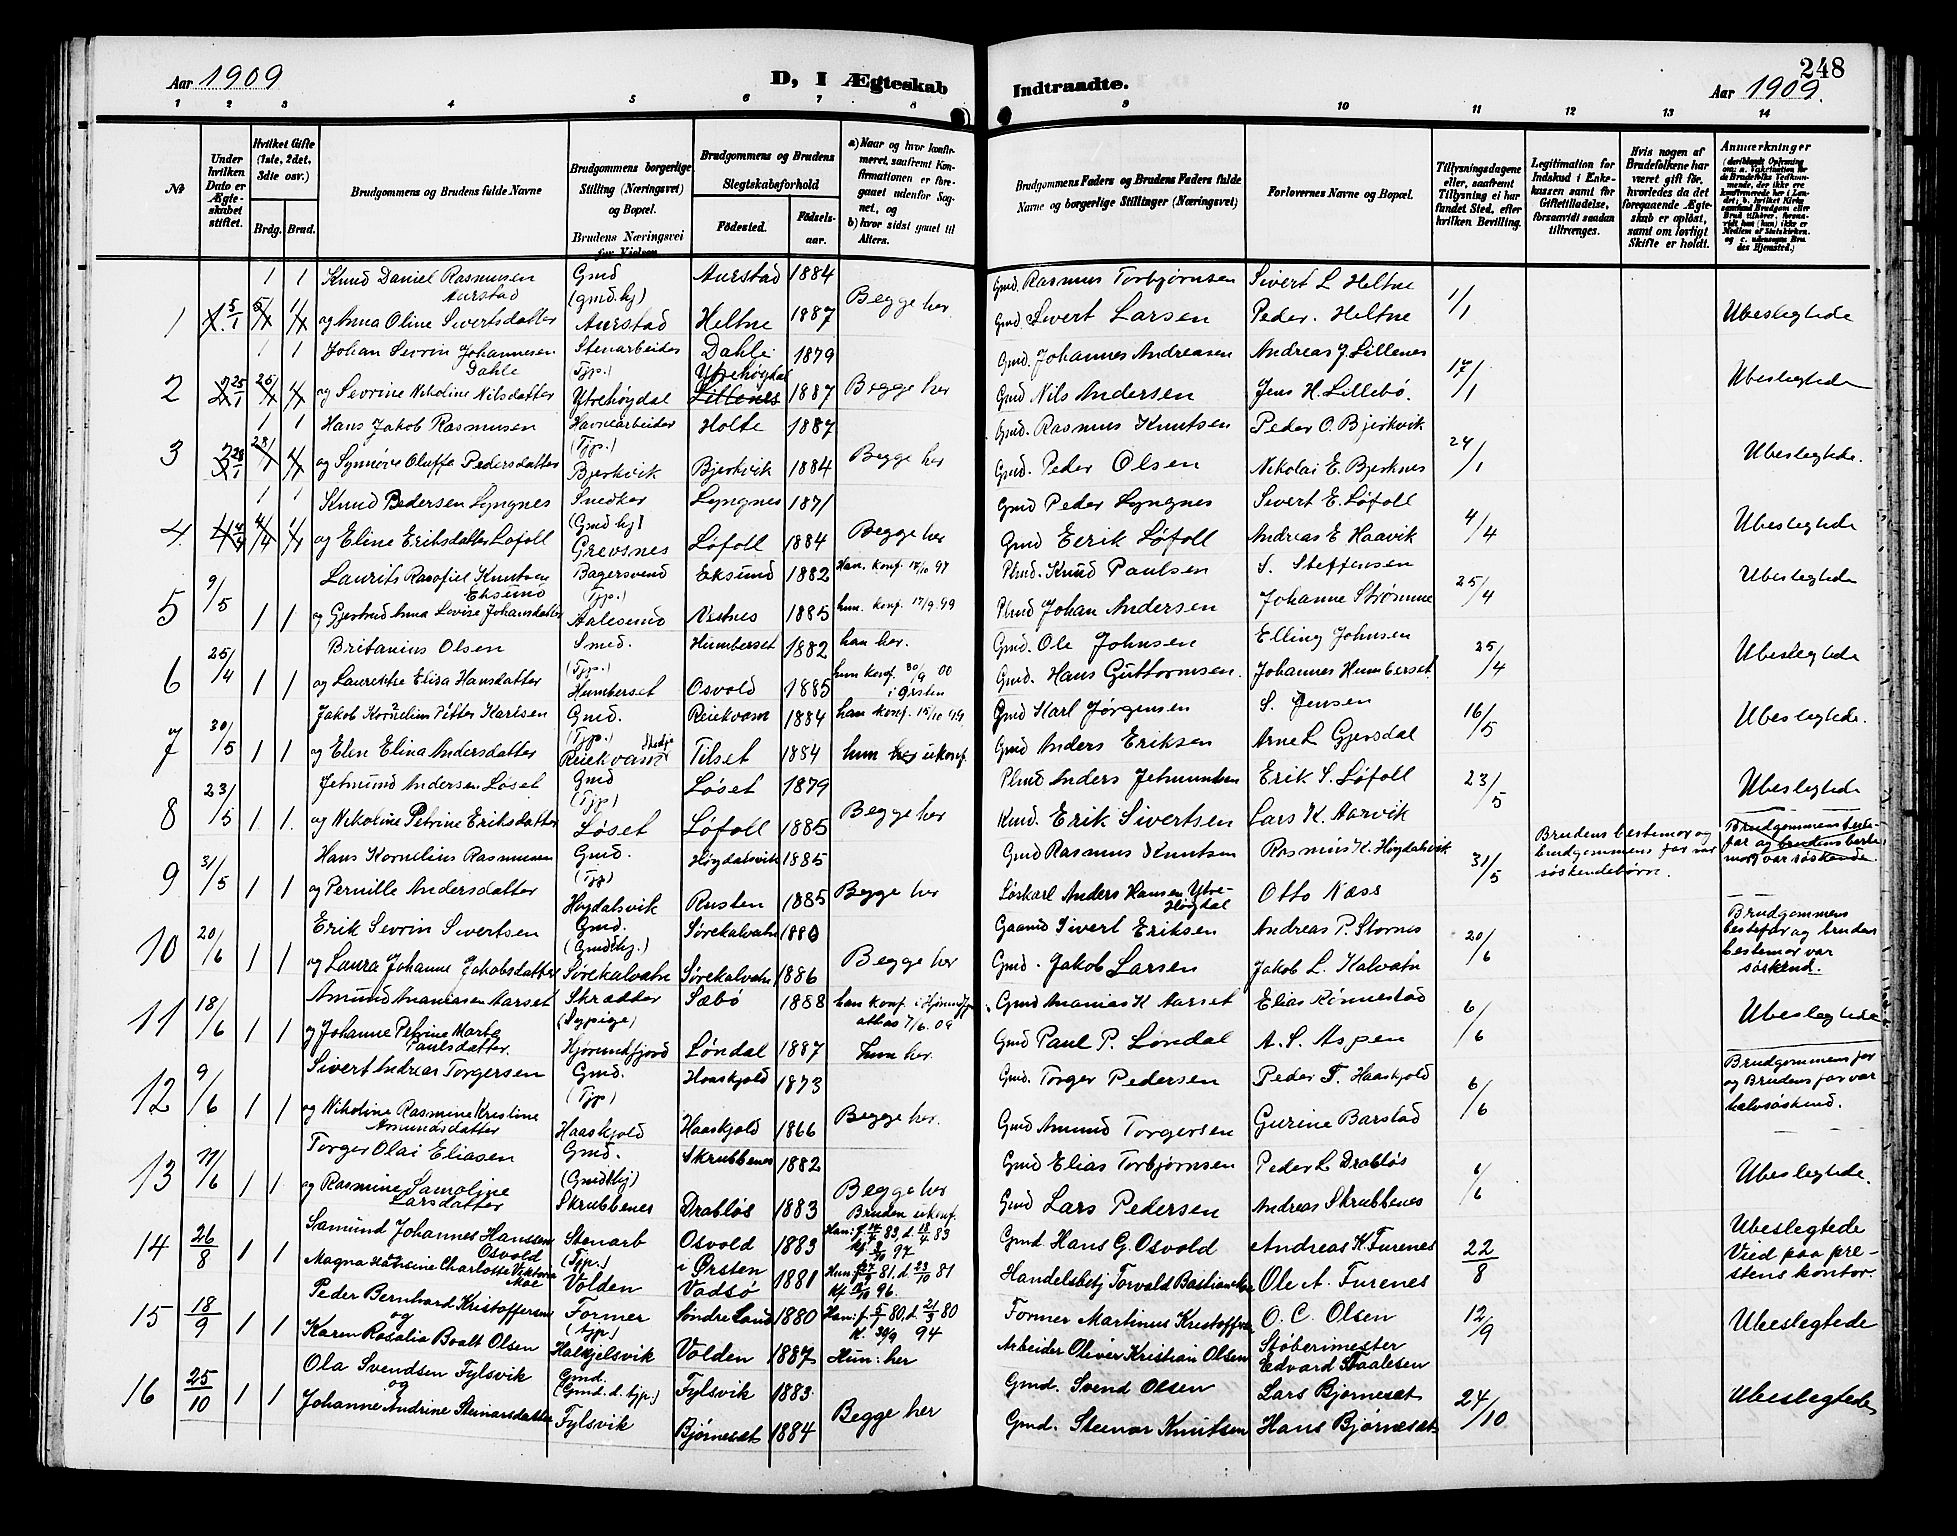 248
Aar 1909
D, I Ægteskab
Indtraadte.
Aar 1909.
1 2 3 4 5 6 7 8 9 10 11 12 13 14
№
Under hvilken Dato er Ægteskabet stiftet.
Hvilket Gifte (1ste, 2det, 3die osv.)
Brdg. Brud.
Brudgommens og Brudens fulde Navne
Brudgommens borgerlige Stilling (Næringsvei) og Bopæl.
Brudens Næringsvei før Vielsen
Brudgommens og Brudens Slegtskabsforhold
Fødested.
Fødselsaar.
a) Naar og hvor konfirmeret, saafremt Konfirmationen er foregaaet udenfor Sognet, og
b) hvor sidst gaaet til Alters.
Brudgommens Faders og Brudens Faders fulde Navne og borgerlige Stillinger (Næringsvei)
Forlovernes Navne og Bopæl.
Tillysningsdagene eller, saafremt Tillysning ei har fundet Sted, efter hvilken Bevilling.
Legitimation for Indskud i Enkekassen samt for Giftetilladelse, forsaavidt saadan tiltrænges.
Hvis nogen af Brudefolkene har været gift før, hvorledes da det foregaaende Ægteskab er opløst, samt om lovligt Skifte er holdt.
Anmærkninger
1 5/1 1 1 Knud Daniel Rasmusen Aurstad Gmd Aurstad 1884 Begge her Gmd. Rasmus Torbjørnsen Sivert L Heltne 1/1 Ubeslegtede
og Anna Oline Sivertsdatter (gmd.hj) Aurstad Heltne 1887 Gmd Sivert Larsen Peder. Heltne
2 25/1 1 1 Johan Sevrin Johannesen Dahle Stenarbeider Dahle 1879 Begge her Gmd. Johannes Andreasen Andreas J. Lillenes 17/1 Ubeslegtede
og Sevrine Nikoline Nilsdatter (Tjp.) Ytrehøgdal Ytrehøgdal Lillenes 1887 Gmd Nils Andersen Jens H. Lillebø.
3 28/1 1 1 Hans Jakob Rasmusen Havnearbeider Holte 1887 Begge her Gmd. Rasmus Knutsen Peder O. Bjerkvik 24/1 Ubeslegtede.
og Synnøve Oluffa Pedersdatter (Tjp.) Bjerkvik Bjerkvik 1884 Gmd. Peder Olsen Nikolai E. Bjerknes
4 1 1 Knud Pedersen Lyngnes Snedker Lyngnes 1871 Begge her Gmd Peder Lyngnes Sivert E. Løfoll 4/4 Ubeslegtede
og Eline Eriksdatter Løfoll (Gmd hj) Grevsnes Løfoll 1884 Gmd Eerik Løfoll Andreas E Haavik
5 9/5 1 1 Laurits Rasofiel Knutsen Eksund Bagersvend Eksund 1882 Han. konf. 17/10 97 Plmd. Knud Paulsen S. Steffensen 25/4 Ubeslegtede
og Gjertrud Anna Lovise Johansdatter (Tjp.) Aalesund Nestnes 1885 hun. konf. 17/9.99 Plmd Johan Andersen Johanne Strømme
6 25/4 1 1 Britanius Olsen Smed. Humberset 1882 han her. Gmd. Ole Johnsen Elling Johnsen 25/4 Ubeslegtede
og Laurentse Elisa Hansdatter (Tjp.) Humberset Osvold 1885 hun konf. 30/9 00 i Ørsten Gmd. Hans Guttormsen. Johannes Humberset
7 30/5 1 1 Jakob Kornelius Petter Karlsen Gmd. Reiekvam 1884 han konf. 15/10 99 Gmd Karl Jørgensen S. Jensen 16/5 Ubeslegtede.
og Elen Elina Andersdatter (Tjp.) Reiekvam Tilset 1884 hun her ukonf. Gmd Anders Eriksen Arne L Gjersdal
8 23/5 1 1. Jetmund Andersen Løset Gmd Løset 1879 Begge her Plmd Anders Jetmundsen Erik S. Løfoll 23/5 Ubeslegtede
og Nikoline Petrine Eriksdatter (Tjp) Løset Løfoll 1885 Kmd. Erik Sivertsen Lars K. Aarvik
9 31/5 1 1 Hans Kornelius Rasmusen Gmd. Høgdalsvik 1885 Begge her Gmd Rasmus Knutsen Rasmus K. Høgdalsvik 31/5 Brudens bestemor og brudgommens far var søskendebørn. Brudgommens bestefar og brudens bestemor var søskende.
og Pernille Andersdatter (Tjp) Høgdalsvik Rusten 1885 Løskarl Anders Hansen Ytre-Høgdal Otto Næss
10 20/6 1 1 Erik Sevrin Sivertsen Gmd. Sørekalvatn 1880 Begge her Gaamd Sivert Eriksen Andreas P. Stornes 20/6 Brudgommens bestefar og brudens bestemor var søskend.
og Laura Johanne Jakobsdatter (Gmdthj.) Sørekalvatn Sørekalvatn 1886 Gmd. Jakob Larsen Jakob L. Kalvatn
11 18/6 1 1 Amund Ananiasen Aarset Skrædder Sæbø 1888 han konf. i Hjørundfjo althas 7/6.09 Gmd Ananias K Aarset Elias Rønnestad 6/6 Ubeslegtede
og Johanne Petrine Marta Paulsdatter. (Sypige) Hjørundfjord Løndal 1887 Hun her. Gmd Paul P. Løndal A. S. Aspen
12 9/6 1 1 Sivert Andreas Torgersen Gmd. Haaskjold 1873 Begge her. Gmd. Torger Pedersen Peder T. Haaskjold 6/6 Brudgommens far og Brudens far var halvsøskend.
og Nikoline Rasmine Kristine Amundsdatter (Tjp) Haaskjold Haaskjold 1866 Gmd Amund Torgersen Gurine Barstad
13 11/6 1 1 Torger Olai Eliasen Gmd. Skrubbenes 1882 Begge her Gmd Elias Torbjørnsen Peder L Drabløs 6/6 Ubeslegtede.
og Rasmine Samoline Larsdatter (Gmdthj) Skrubbenes Drabløs 1883 Bruden ukonf. Gmd Lars Pedersen Andreas Skrubbenes
14 26/8 1 1 Samund Johannes Hanssen Osvold Stenarb Osvold i Ørsten 1883 Han: f. 14/4 83, d. 18/4 83 Kf. 3/10 97 Gmd Hans G. Osvold Andreas K. Furenes 22/8 Ubeslegtede Vied paa prestens kontor.
Magna Hansine Charlotte Viktoria Moe (Tjp.) Volden Vadsø 1881 Hun f. 27/9 81, d. 23/10 81 Kf. 96. Handelsbetj Torvald Bastian Moe Ole A. Furenes
15 18/9 1 1 Peder Bernhard Kristoffersen og Former Søndre Land 1880 Han: f. 5/1 80, d. 21/3 80 K. 30/9 94 Former Martinus Kristoffersen O. C. Olsen 12/9 Ubeslegtede
Karen Rosalia Boalt Olsen (tjp.) Halkjelsvik Volden 1887 Hun: her Arbeider Oliver Kristian Olsen Støberimester Edvard Staalesen
16 25/10 1 1 Ola Svendsen Fylsvik og Gmd. Fylsvik 1883 Begge her Gmd. Svend Olsen Lars Bjørneset 24/10 Ubeslegtede
Johanne Andrine Steinarsdatter (Gmd. d. tjp.) Fylsvik Bjørneset 1884 Gmd. Steinar Knutsen Hans Bjørneset